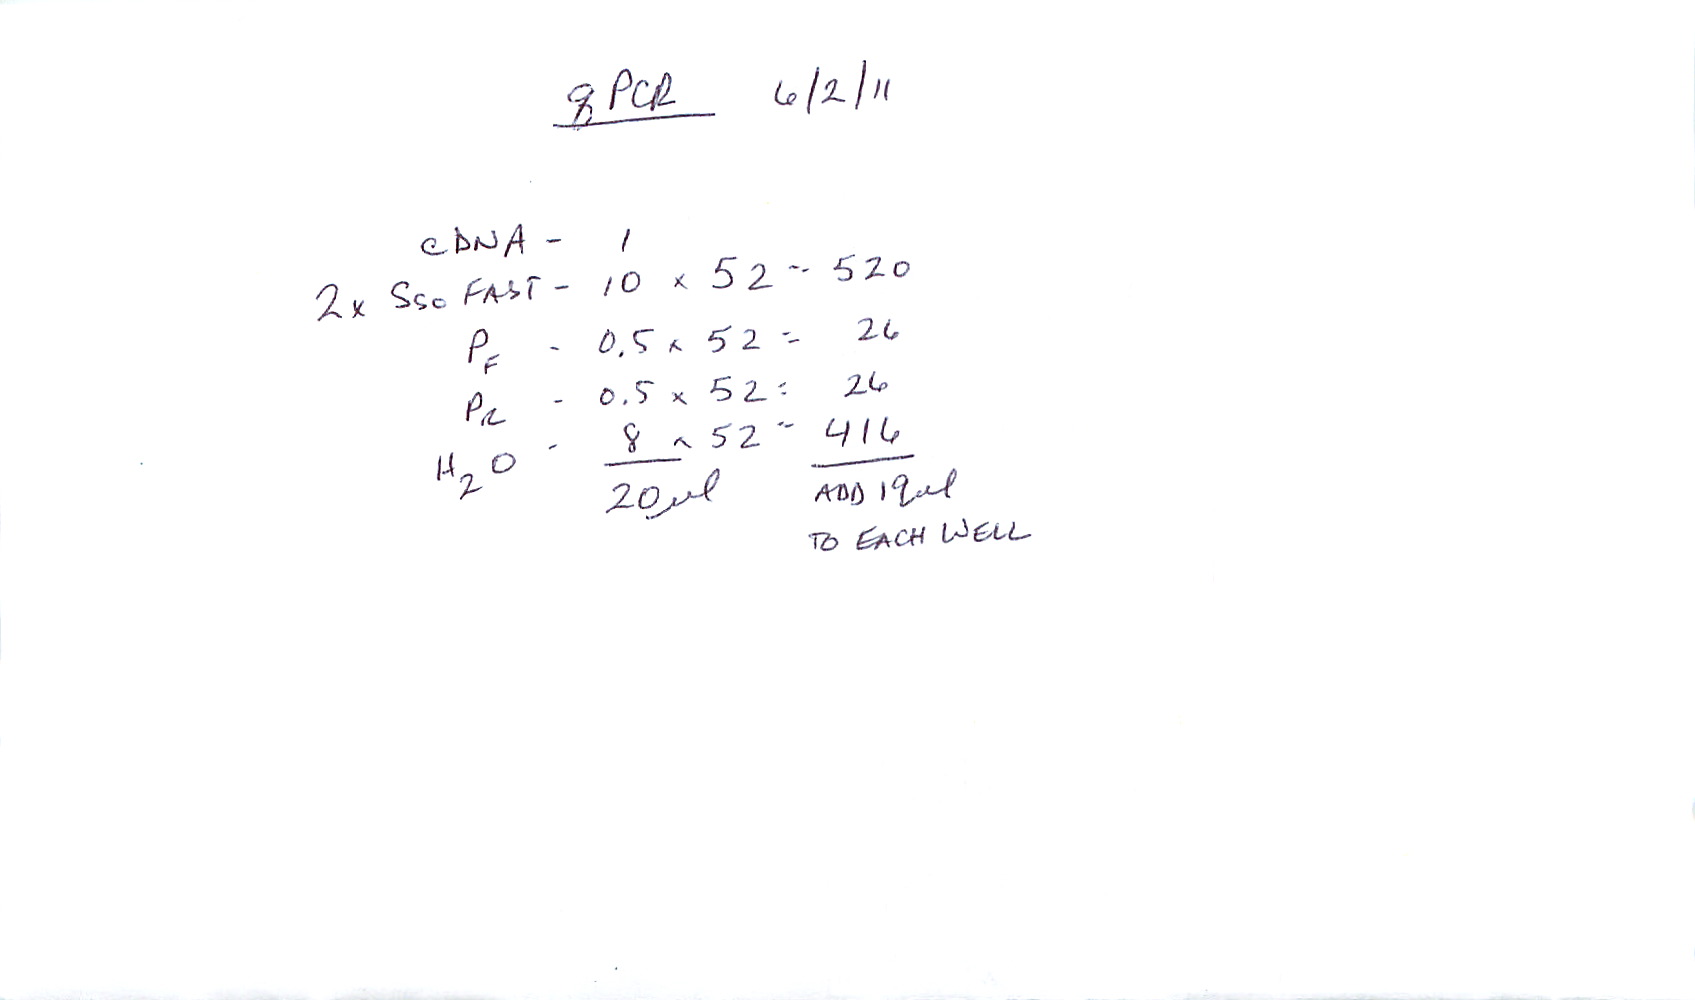 qPCR 6/2/11
cDNA - 1
2x Sso FAST - 10 x 52 = 520
PF - 0.5 x 52 = 26
PR - 0.5 x 52 = 26
H2O - 8 x 52 = 416
20 µl ADD 19 µl
TO EACH WELL